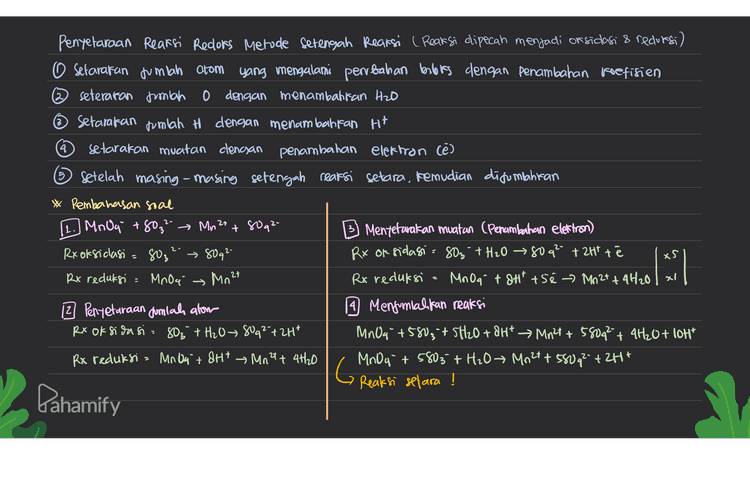 Penyetaraan Reaksi Redoks Metode Setengah Reaksi (Reaksi dipecah menjadi oksidasi & reduksi)
① Setarakan jumlah atom yang mengalami perubahan biloks dengan penambahan koefisien
② setarakan jumlah O dengan menambahkan H₂O
③ Setarakan jumlah H dengan menambahkan H⁺
④ setarakan muatan dengan penambahan elektron (ē)
⑤ Setelah masing-masing setengah reaksi setara, kemudian dijumlahkan
※ Pembahasan soal
1. MnO₄⁻ + SO₃²⁻ → Mn²⁺ + SO₄²⁻
Rx oksidasi = SO₃²⁻ → SO₄²⁻
Rx reduksi = MnO₄⁻ → Mn²⁺
2 Penyetaraan jumlah atom
Rx oksidasi = SO₃⁻ + H₂O → SO₄²⁻ + 2H⁺
Rx reduksi = MnO₄⁻ + 8H⁺ → Mn²⁺ + 4H₂O
3 Menyetarakan muatan (Penambahan elektron)
Rx oksidasi = SO₃⁻ + H₂O → SO₄²⁻ + 2H⁺ + ē | x5
Rx reduksi = MnO₄⁻ + 8H⁺ + 5ē → Mn²⁺ + 4H₂O | x1
4 Menjumlahkan reaksi
MnO₄⁻ + 5SO₃⁻ + 5H₂O + 8H⁺ → Mn²⁺ + 5SO₄²⁻ + 4H₂O + 10H⁺
MnO₄⁻ + 5SO₃⁻ + H₂O → Mn²⁺ + 5SO₄²⁻ + 2H⁺
Reaksi setara !
Pahamify